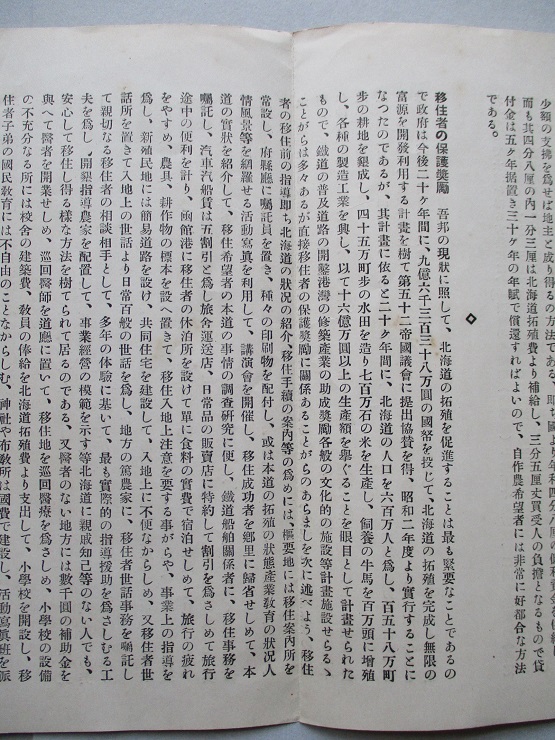 少額の支拂を爲せば地主と成り得る方法である、即ち國より年利四分八厘の低利資金を供給し
而も其四分八厘の内一分三厘は北海道拓殖費より補給し、三分五厘丈買受人の負擔となるもので貸
付金は五ヶ年据置き三十ヶ年の年賦で償還すればよいので、自作農希望者には非常に好都合な方法
である。
◇
移住者の保護奬勵　吾邦の現狀に照して、北海道の拓殖を促進することは最も緊要なことであるの
で政府は今後二十ヶ年間に、九億六千三百三十八萬圓の國帑を投じて、北海道の拓殖を完成し無限の
富源を開發利用する計畫を樹て第五十二帝國議會に提出協賛を得、昭和二年度より實行することに
なつたのであるが、其計畫に依ると二十ヶ年間に、北海道の人口を六百万人と爲し、百五十八万町
步の耕地を墾成し、四十五万町步の水田を造り七百万石の米を生產し、飼養の牛馬を百万頭に增殖
し、各種の製造工業を興し、以て十六億万圓以上の生產額を擧ぐることを眼目として計畫せられた
もので、鐵道の普及道路の開鑿港灣の修築產業の助成奬勵各般の文化的の施設等計畫施設せらるゝ
ことがらは多々あるが直接移住者の保護奬勵に關係あることがらのあらましを次に述べよう、移住
者の移住前の指導即ち北海道の狀況の紹介、移住手續の案內等の爲めには、樞要地には移住案內所を
常設し、府縣廳に囑託員を置き、種々の印刷物を配付し、或は本道の拓殖の狀態產業敎育の狀況人
情風景等を網羅せる活動寫眞を利用して、講演會を開催し、移住成功者を鄕里に歸省せしめて、本
道の實狀を紹介して、移住希望者の本道の事情の調査硏究に便し、鐵道船舶關係者に、移住事務を
囑託し、汽車汽船賃は五割引と爲し旅舍運送店、日常品の販賣店に特約して割引を爲さしめて旅行
途中の便利を計り、函館港に移住者の休泊所を設けて單に食料の實費で宿泊せしめて、旅行の疲れ
をやすめ、農具、耕作物の標本を設へ置きて、移住入地上注意を要する事がらや、事業上の指導を
爲し、新殖民地には簡易道路を設け、共同住宅を建設して、入地上に不便なからしめ、又移住者世
話所を置きて入地上の世話より日常百般の世話を爲し、地方の篤農家に、移住者世話事務を囑託し
て親切なる移住者の相談相手として、多年の体驗に基いて、最も實際的の指導援助を爲さしむる工
夫を爲し、開墾指導農家を配置して、事業經營の模範を示す等北海道に親戚知己等のない人でも、
安心して移住し得る樣な方法を樹てられて居るのである、又醫者のない地方には數千圓の補助金を
與へて醫者を開業せしめ、巡回醫師を道廳に置いて、移住地を巡回醫療を爲さしめ、小學校の設備
の不充分なる所には校舍の建築費、敎員の俸給を北海道拓殖費より支出して、小學校を開設し、移
住者子弟の國民敎育には不自由のことなからしむ、神社や布敎所は國費で建設し、活動寫眞班を派